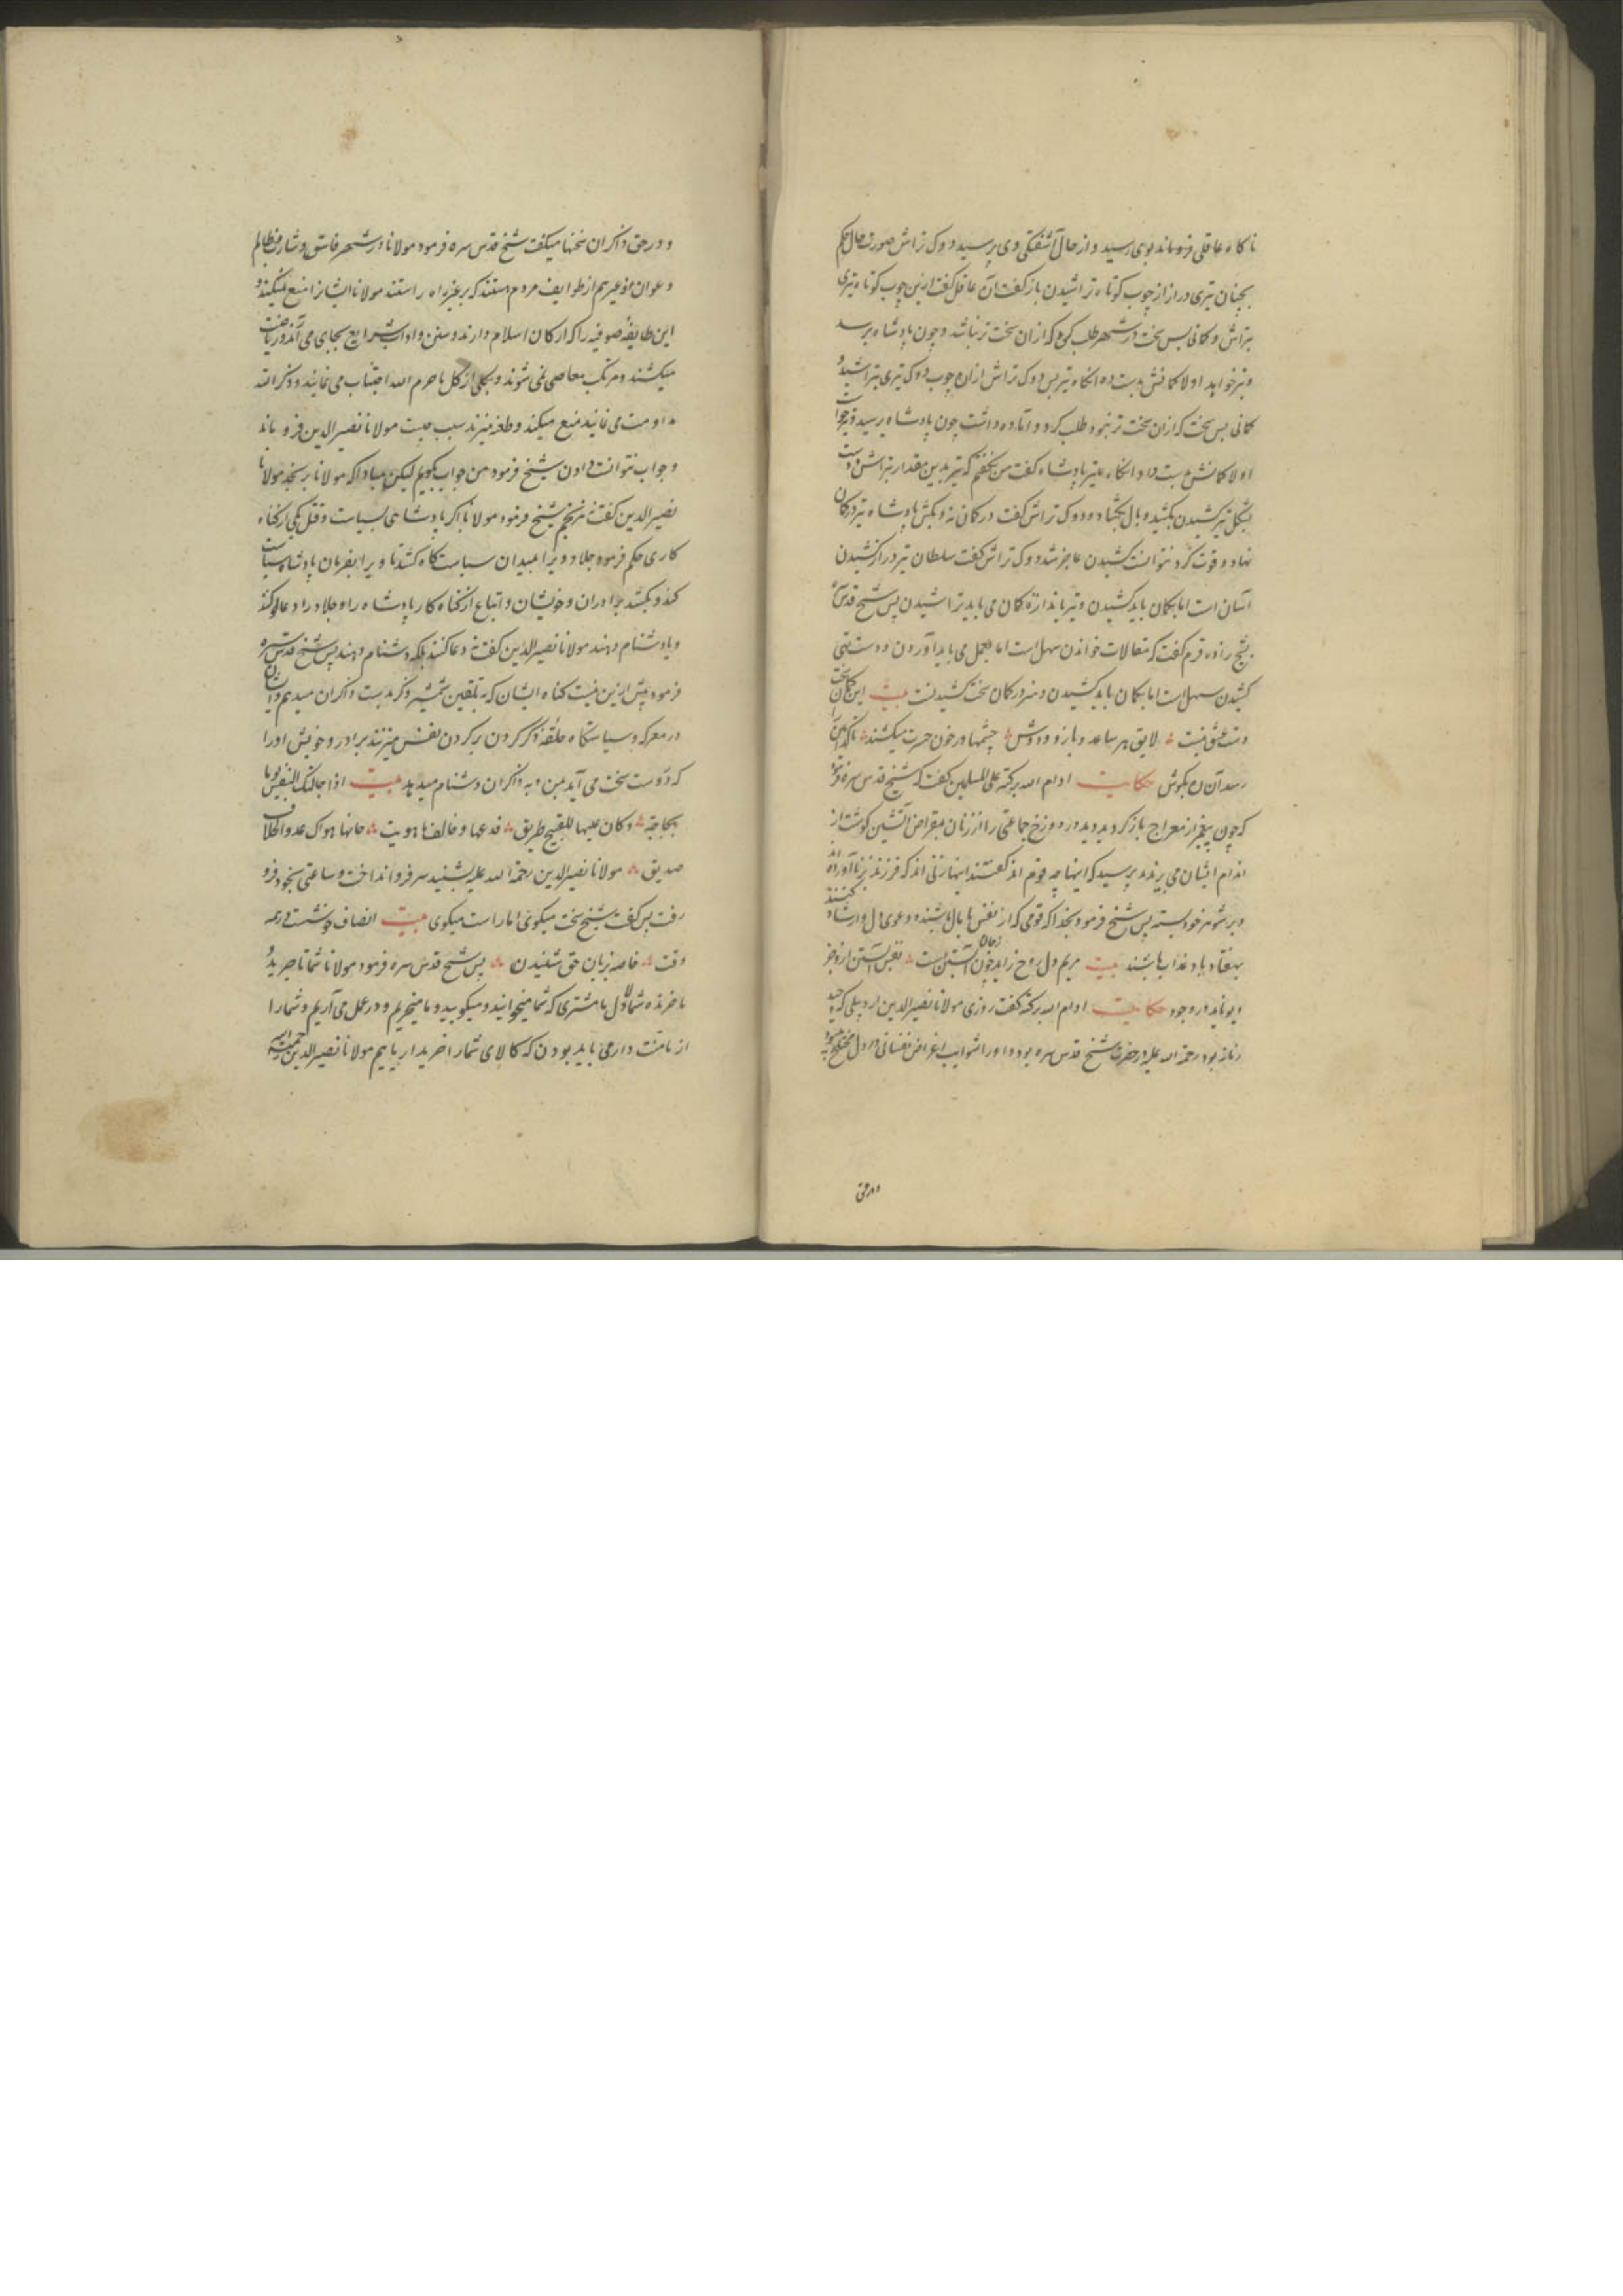 ناکاه عاقلی فروماند بوی رسید و از حال آشفتکی وی پرسید دوک تراش صورت حال حکم
بچنان تیری دراز از چوب کوتاه تراشیدن بازکفت آن عاقل کفت ازین چوب کوتاه تیری
بتراش و کمانی بس سخت در شهر طلب کن که از ان سخت تر نباشد و چون پادشاه برسد
و تیر خواهد اولا کمانش بدست ده انکاه تیر پس دوک تراش از ان چوب دوک تیری بتراشید و
کمانی بس سخت که از ان سخت تر نبود طلب کرد و آماده داشت چون پادشاه برسید و تیر خواست
اولا کمانش بدست داد انکاه تیر پادشاه کفت من نکفتم که تیر بدین مقدار بتراش دست
بشکل تیر کشیدن بکشید و بال بکشاد دوک تراش کفت در کمان نه و بکش پادشاه تیر در کمان
نهاد و قوت کرد نتوانست کشیدن عاجز شد دوک تراش کفت سلطان تیر دراز کشیدن
آسان است اما بکمان باید کشیدن و تیر باندازه کمان می باید تراشیدن پس شیخ قدس سره
بشیخ زاده قرم کفت که مقالات خواندن سهل است اما بعمل می باید آوردن و دست تهی
کشیدن سهل است اما بکمان باید کشیدن و هنر در کمان سخت کشیدنست بیت این کمان سخت
دست عشق نیست لایق هر ساعد و بازو و دوش چشمها در خون حسرت میکشند تا کدامین را
رسد آن ره بکوش حکایت ادام الله برکته علی المسلمین کفت که شیخ قدس سره فرمود
که چون پیغمبر از معراج باز کردید دید در دوزخ جماعتی را از زنان بمقراض آتشین کوشت از
اندام ایشان می بریدند پرسید که اینها چه قوم اند کفتند اینها زنی اند که فرزند بزنا آورده اند
و بر شوهر خود بسته پس شیخ فرمود بخدا که قومی که از نفس با بال باشند و دعوی دل و ارشاد کنند
بهفتاد باد عذاب باشند بیت مریم دل بروح زاید چون آبستن است نفس آبستن از و جز
دیو ناید در وجود حکایت ادام الله برکته کفت روزی مولانا نصیر الدین اردبیلی که وحید
زمانه بود رحمة الله علیه در حضرت شیخ قدس سره بود و او را شوایب اغراض نفسانی در دل مختلج میبود
و در حق
و در حق ذاکران سخنها میکفت شیخ قدس سره فرمود مولانا در شهر فاسق و شارب و ظالم
و عوان و غیرهم از طوایف مردم هستند که بر غیر راه راستند مولانا ایشانرا منع نمیکند و
این طایفه صوفیه را که ارکان اسلام دارند و سنن و اداب شرایع بجای می آرند و ریاضت
میکشند و مرتکب معاصی نمی شوند و بکلی از کل ما حرم الله اجتناب می نمایند و ذکر الله
مداومت می نمایند منع میکند و طعنه میزند سبب چیست مولانا نصیر الدین فرو ماند
و جواب نتوانست دادن شیخ فرمود من جواب بکویم لیکن مبادا که مولانا برنجد مولانا
نصیر الدین کفت نه نرنجم شیخ فرمود مولانا اکر پادشاهی بسیاست و قتل یکی از کناه
کاری حکم فرمود جلاد ویرا بمیدان سیاستکاه کشد تا ویرا بفرمان پادشاه سیاست
کند و بکشد برادران و خویشان و اتباع ان کناه کار پادشاه را و جلاد را دعا کو کند
و یا دشنام دهند مولانا نصیر الدین کفت نه دعا کنند بلکه دشنام دهند پس شیخ قدس سره
فرمود بیش ازین نیست کناه ایشان که به تلقین شمشیر ذکر بدست ذاکران میدهیم و ایشان
در معرکه و سیاستکاه حلقه ذکر کردن بر کردن نفس میزنند برادر و خویش او را
که دوست سخت می آید بمن و به ذاکران دشنام میدهد بیت اذا جالتک النفس یوما
بحاجة و کان علیها للقبیح طریق فدعها و خالف ما هویت فانما هواک عدو و الخلاف
صدیق مولانا نصیر الدین رحمة الله علیه بشنید سر فرو انداخت و ساعتی بخود فرو
رفت پس کفت شیخ سخت میکوی اما راست میکوی بیت انصاف خوشست در همه
وقت خاصه زبان حق شنیدن پس شیخ قدس سره فرمود مولانا شما تاجرید و
ما خرنده شما دلال ما مشتری که شما میخوانید و میکویید و ما میخریم و در عمل می آریم و شما را
از ما منت دار می باید بودن که کالای شما را خریدار یابیم مولانا نصیر الدین رحمة الله